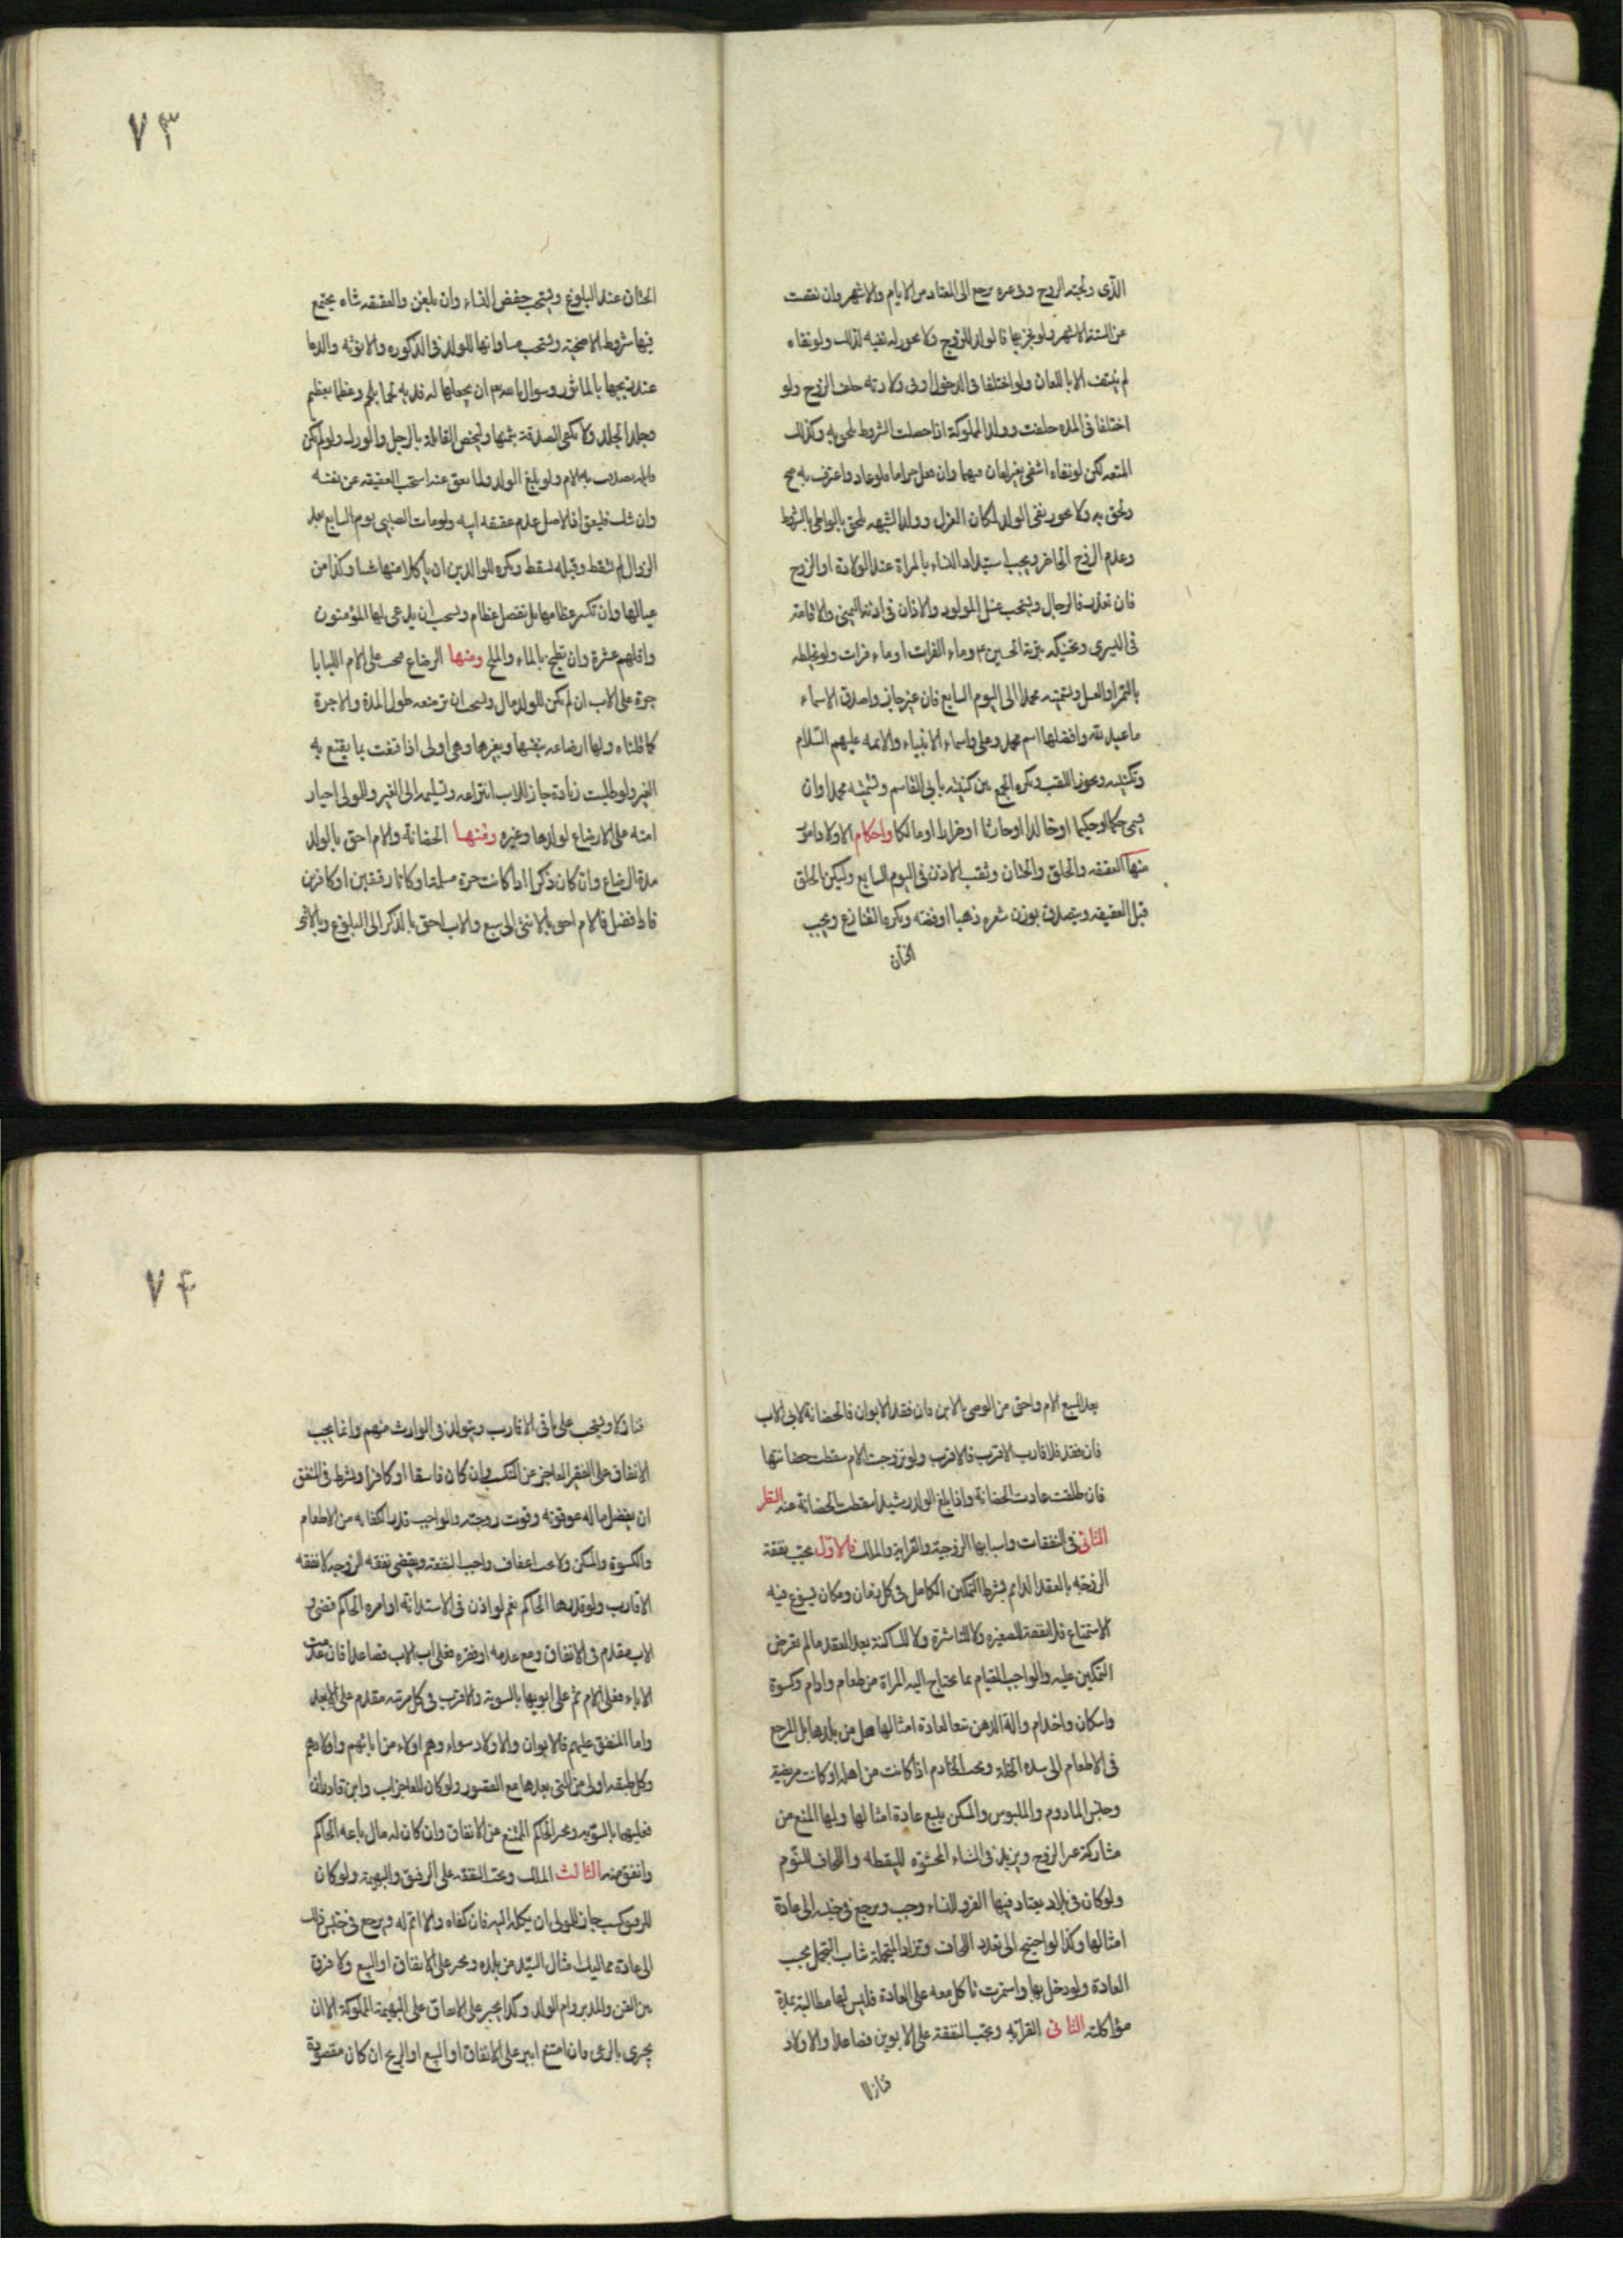 الذى ولجته الروح وفى غيره يرجع الى المعتاد من الايام والاشهر وان نقصت
عن الستة الاشهر ولو فجر بها فالولد للزوج ولا يجوز له نفيه لذلك ولو نفاه
لم ينتف الا باللعان ولو اختلفا فى الدخول او فى ولادته حلف الزوج ولو
اختلفا فى المدة حلفت وولد المملوكة اذا حصلت الشروط لحق به وكذلك
المتعه لكن لو نفاه انتفى بغير لعان فيهما وان فعل حراما فلو عاد واعترف به صح
ولحق به ولا يجوز نفى الولد لمكان العزل وولد الشبهه يلحق بالواطى بالشروط
وعدم الزوج الحاضر ويجب استبداد النساء بالمراة عند الولادة او الزوج
فان تعذر فالرجال ويستحب غسل المولود والاذان فى اذنه اليمنى والاقامة
فى اليسرى وتحنيكه بتربة الحسين ع وماء الفرات او ماء فرات ولو بخلطه
بالتمر او العسل وتسميته محمدا الى اليوم السابع فان غير جاز واصدق الاسماء
ما عبد لله وافضلها اسم محمد وعلى واسماء الانبياء والائمه عليهم السلام
وتكنيته ويجوز اللقب ويكره الجمع بين كنيته بابى القاسم وتسميته محمدا وان
يسمى حكما او حكيما او خالدا او حارثا او ضرارا او مالكا واحكام الاولاد امور
منها العقيقه والحلق والختان وثقب الاذن فى اليوم السابع وليكن الحلق
قبل العقيقه ويتصدق بوزن شعره ذهبا او فضه ويكره القنازع ويجب
الختان
٧٣
الختان عند البلوغ ويستحب خفض النساء وان بلغن والعقيقه شاه يجتمع
فيها شروط الاضحية ويستحب مساواتها للولد فى الذكوره والانوثه والدعا
عند ذبحها بالماثور وسوال الله تعالى ان يجعلها له فديه لحما بلحم وعظما بعظم
وجلدا بجلد ولا تكفى الصدقة بثمنها وليخص القابلة بالرجل والورك ولو لم تكن
قابله تصدقت به الام ولو بلغ الولد ولما يعق عنه استحب العقيقه عن نفسه
وان شك فليعق اذ الاصل عدم عقيقه ابيه ولو مات الصبى يوم السابع بعد
الزوال لم تسقط وقبله تسقط ويكره للوالدين ان ياكلا منها شيئا وكذا من
عيالها وان تكسر عظامها بل تفصل عظام ويستحب ان يدعى لها المؤمنون
واقلهم عشرة وان تطبخ بالماء والملح ومنها الرضاع فيجب على الام اللبا با
جرة على الاب ان لم يكن للولد مال ويستحب ان ترضعه طول المدة والاجرة
كما قلناه ولها ارضاعه بنفسها وبغيرها وهى اولى اذا قنعت بما يقنع به
الغير ولو طلبت زيادة جاز للاب انتزاعه وتسليمه الى الغير وللمولى اجبار
امته على الارضاع لولدها وغيره ومنها الحضانة والام احق بالولد
مدة الرضاع وان كان ذكرا اذا كانت حرة مسلمة او كانا رقيقين او كافرين
فاذا فصل فالام احق بالانثى الى سبع والاب احق بالذكر الى البلوغ وبالانثى
بعد السبع والام احق من الوصى بالابن فان فقد الابوان فالحضانة لابى الاب
فان فقد فللاقارب الاقرب فالاقرب ولو تزوجت الام سقطت حضانتها
فان طلقت عادت الحضانة واذا بلغ الولد رشيدا سقطت الحضانة عنه النظر
الثانى فى النفقات واسبابها الزوجية والقرابة والملك فالاول تجب نفقة
الزوجه بالعقد الدائم بشرط التمكين الكامل فى كل زمان ومكان يسوغ فيه
الاستمتاع فلا نفقة للصغيره ولا للناشزة ولا للساكتة بعد العقد ما لم تعرض
التمكين عليه والواجب القيام بما تحتاج اليه المراة من طعام وادام وكسوة
واسكان واخدام والة الدهن تبعا لعادة امثالها من اهل بلدها والمرجع
فى الاطعام الى سد الخلة ويجب الخادم اذا كانت من اهله او كانت مريضة
وجنس المادوم والملبوس والمسكن يتبع عادة امثالها ولها المنع من
مشاركة غير الزوج ويزيد فى الشتاء المحشوه لليقظه واللحاف للنوم
ولو كان فى بلاد يعتاد فيها الفرو للنساء وجب ويرجع فى جنسه الى عادة
امثالها وكذا لو احتيج الى تعدد اللحاف وتزاد المتجملة ثياب التجمل بحسب
العادة ولو دخل بها واستمرت تاكل معه على العادة فليس لها مطالبته بمدة
مؤاكلته الثانى القرابة وتجب النفقة على الابوين فصاعدا والاولاد
فنازلا
٧۴
فنازلا ويستحب على باقى الاقارب ويتاكد فى الوارث منهم وانما يجب
الانفاق على الفقير العاجز عن التكسب وان كان فاسقا او كافرا ويشترط فى المنفق
ان يفضل ماله عن قوته وقوت زوجته والواجب قدر الكفايه من الاطعام
والكسوة والمسكن ولا يجب اعفاف واجب النفقة ويقضى نفقه الزوجه لا نفقه
الاقارب ولو قدرها الحاكم نعم لو اذن فى الاستدانة او امره الحاكم قضى و
الاب مقدم فى الانفاق ومع عدمه او فقره فعلى اب الاب فصاعدا فان عدمت
الاباء فعلى الام ثم على ابويها بالسوية والاقرب فى كل مرتبه مقدم على الابعد
واما المنفق عليهم فالابوان والاولاد سواء وهم اولى من ابائهم واولادهم
وكل طبقه اولى من التى بعدها مع القصور ولو كان للعاجز اب وابن قادران
فعليهما بالسويه ويجبر الحاكم الممتنع عن الانفاق وان كان له مال باعه الحاكم
وانفق منه الثالث الملك وتجب النفقه على الرقيق والبهيمة ولو كان
للرقيق كسب جاز للمولى ان يكله اليه فان كفاه والا اتم له ويرجع فى جنس ذلك
الى عادة مماليك امثال السيد من بلده ويجبر على الانفاق او البيع ولا فرق
بين القن والمدبر وام الولد وكذا يجبر على الانفاق على البهيمة المملوكة الا ان
يجتزى بالرعى فان امتنع اجبر على الانفاق او البيع او الذبح ان كان مقصودة